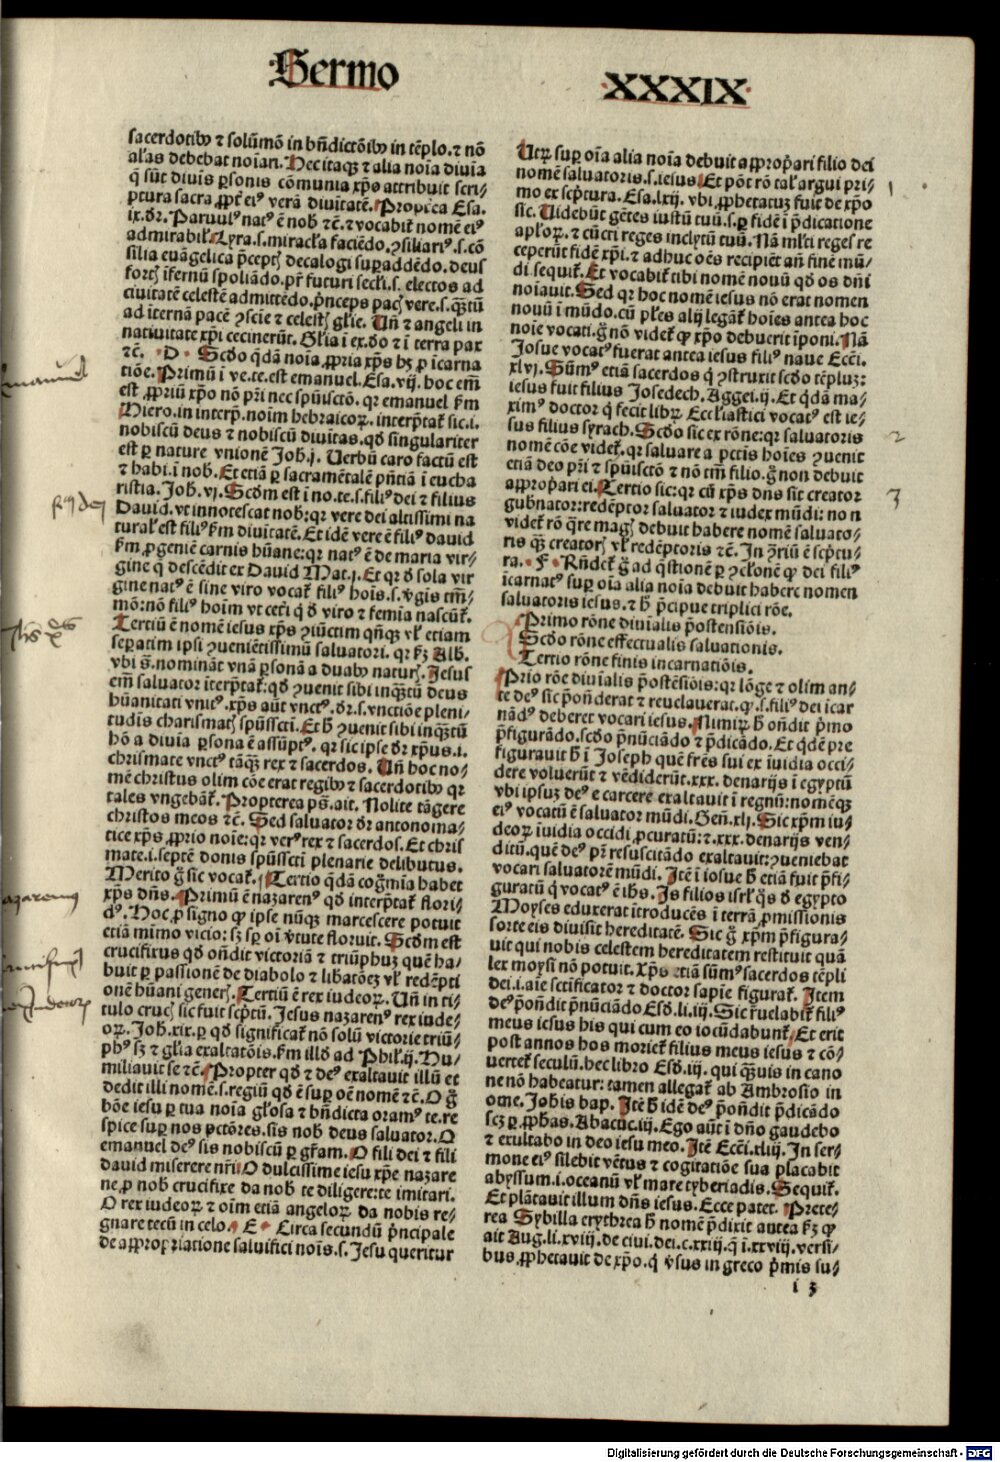 Sermo XXXIX
sacerdotibꝰ ⁊ solūmō in bn̄dictōibꝰ in tēplo.⁊ nō
alias debebat noīari. Hec itaqꝫ ⁊ alia noīa diuīa
q̄ sūt diuīs ꝑsonis cōmunia xp̄s attribuit scri-
ptura sacra ꝓpt̄ eiꝰ verā diuītatē. Propt̄ea Esa.
ix.dr̄. Paruulꝰ natꝰ ē nob̄ ⁊c̄.⁊ vocabit̄ nomē eiꝰ
admirabil̄. Lyra.s.miracl̄a faciēdo.ꝯsiliariꝰ.s.cō
silia euāgelica p̄ceptꝭ decalogi suꝑaddēdo.deus
fortꝭ īfernū spoliādo.pr̄ futuri secl̄i.s. electos ad
ciuitatē celestē admittēdo.p̄nceps pacꝭ vere.s.qꝫtū
ad īternā pacē ꝯscīe ⁊ celestꝭ gl̄ie. Un̄ ⁊ angeli in
natiuitate xp̄i cecinerūt. Gl̄ia ī ex.do ⁊ ī terra pax
⁊c̄. D Scd̄o q̄dā noīa ꝓpria xp̄s hꝫ ꝑ īcarna
tiōe. Primū ī ve.te.est emanuel. Esa.vij. hoc em̄
est ꝓpriū xp̄o nō pr̄i nec sp̄uīsctō. qꝛ emanuel fm̄
Hiero.in interp̄.noīm hebraicoꝝ. interp̄tat̄ sic.i.
nobiscū deus ⁊ nobiscū diuītas.qd̄ singulariter
est ꝑ nature vnionē Joh.j. Uerbū caro factū est
⁊ habi.ī nob̄. Et etiā ꝑ sacramētalē pn̄tiā ī eucha
ristia. Joh.vj. Scd̄m est ī no.te.s.filiꝰ dei ⁊ filius
Dauid.vt innotescat nob̄:qꝛ vere dei altissimi na
tural̄ est filiꝰ fm̄ diuītatē. Et idē vere ē filiꝰ dauid
fm̄ ꝓgeniē carnis hūane:qꝛ natꝰ ē de maria vir-
gine q̄ descēdit ex Dauid Mat.j. Et qꝛ d̄ sola vir
gine natꝰ ē sine viro vocat̄ filiꝰ hoīs.s.v̄gis tm̄-
mō:nō filiꝰ hoīm vt cet̄i q̄ d̄ viro ⁊ femīa nascūt̄.
Tertiū ē nomē iesus xp̄s ꝯiūctim qn̄qꝫ vl̄ etiam
seꝑatim ipsi ꝯueniētissimū saluatori. qꝛ fꝫ Alb.
vbi s̄.nominant vnā ꝑsonā a duabꝰ naturꝭ. Jesus
em̄ saluator īterp̄tat̄:qd̄ ꝯuenit sibi inqꝫtū deus
hūanitati vnitꝰ. xp̄s aūt vnctꝰ.dr̄.s.vnctiōe pleni-
tudis charismatꝭ sp̄ūsscti. Et h̄ ꝯuenit sibi inqꝫtū
hō a diuīa ꝑsona ē assūptꝰ. qꝛ sic ipse dr̄ xp̄us.i.
chrismate vnctꝰ tāqꝫ rex ⁊ sacerdos. Un̄ hoc no-
mē christus olim cōe erat regibꝰ ⁊ sacerdotibꝰ qꝛ
tales vngebāt̄. Propterea pꝫ.ait. Nolite tāgere
christos meos ⁊c̄. Sed saluator dr̄ antonoma-
tice xp̄s ꝓprio noīe:qꝛ verꝰ rex ⁊ sacerdos. Et chris
mate.i.septē donis sp̄ūsscti plenarie delibutus.
Merito ḡ sic vocat̄. Tertio q̄dā cog̃mīa habet
xp̄s dn̄s. Primū ē nazarenꝰ qd̄ interp̄tat̄ flori-
dꝰ. Hoc ꝓ signo qꝙ ipse nūqꝫ marcescere potuit
etiā mimo vicio: sꝫ sꝑ oī v̄tute floruit. Scd̄m est
crucifixus qd̄ on̄dit victoriā ⁊ triūphuꝫ quē ha-
buit ꝑ passionē de diabolo ⁊ lib̄atōeꝫ vl̄ redēpti
onē hūani generꝭ. Tertiū ē rex iudeoꝝ. Un̄ in ti-
tulo crucꝭ sic fuit scp̄tū. Jesus nazarenꝰ rex iude-
oꝝ. Joh.xix.ꝑ qd̄ significat̄ nō solū victorie triū-
phꝰ sꝫ ⁊ gl̄ia exaltatōis.fm̄ illd̄ ad Phil̄.ij. Hu-
miliauit se ⁊c̄. Propter qd̄ ⁊ deꝰ exaltauit illū et
dedit illi nomē.s.regiū qd̄ ē suꝑ oē nomē ⁊c̄. O ḡ
bōe iesu ꝑ tua noīa gl̄osa ⁊ bn̄dicta oramꝰ te.re
spice suꝑ nos pctōres.sis nob̄ deus saluator. O
emanuel deꝰ sis nobiscū ꝑ gr̄am. O fili dei ⁊ fili
dauid miserere nr̄i. O dulcissime iesu xp̄e nazare
ne.ꝓ nob̄ crucifixe da nob̄ te diligere:te imitari.
O rex iudeoꝝ ⁊ oīm etiā angeloꝝ da nobis re-
gnare tecū in celo. E Circa secundū p̄ncipale
de appropriatione saluifici noīs.s. Jesu queritur
Utꝝ suꝑ oīa alia noīa debuit apꝓpari filio dei
nomē saluatoris.s.iesus. Et pōt rō tal̄ argui pri-
mo ex scp̄tura. Esa.lxij. vbi ꝓphetatuꝫ fuit de xp̄o
sic. Uidebūt gētes iustū tuū.s.ꝑ fidē ī p̄dicatione
apl̄oꝝ.⁊ cūcti reges inclytū tuū. Nā ml̄ti reges re
ceperūt fidē xp̄i.⁊ adhuc oēs recipiēt an̄ finē mū-
di sequit̄. Et vocabit̄ tibi nomē nouū qd̄ os dn̄i
noīauit. Sed qꝛ hoc nomē iesus nō erat nomen
nouū ī mūdo.cū pl̄es alij legāt̄ hoīes antea hoc
noīe vocati.ḡ nō videt̄ qꝙ xp̄o debuerit īponi. Nā
Josue vocatꝰ fuerat antea iesus filiꝰ naue Eccī.
xlvj. Sūmꝰ etiā sacerdos q̄ ꝯstruxit scd̄o tēpluꝫ:
iesus fuit filius Josedech. Aggei.ij. Et q̄dā ma-
ximꝰ doctor q̄ fecit libꝝ Eccl̄iastici vocatꝰ est ie-
sus filius syrach. Scd̄o sic ex rōne:qꝛ saluatoris
nomē cōe videt̄.qꝛ saluare a pctīs hoīes ꝯuenit
etiā deo pr̄i ⁊ sp̄uīsctō ⁊ nō tm̄ filio.ḡ non debuit
apꝓpari ei. Tertio sic:qꝛ cū xp̄s dn̄s sit creator
gub̄nator:redēptor saluator ⁊ iudex mūdi: no n
videt̄ rō q̄re magꝭ debuit habere nomē saluato-
ris qꝫ creatorꝭ vl̄ redēptoris ⁊c̄. In ꝯriū ē scp̄tu-
ra. F Rn̄det̄ ḡ ad q̄stionē ꝑ ꝯclonē qꝙ dei filiꝰ
īcarnatꝰ suꝑ oīa alia noīa debuit habere nomen
saluatoris iesus.⁊ h̄ p̄cipue triplici rōe.
Primo rōne diuīalis p̄ostensiōis.
Scd̄o rōne effectualis saluationis.
Tertio rōne finis incarnatiōis.
Prīo rōe diuīalis p̄ostēsiōis:qꝛ lōge ⁊ olim an-
te deꝰ sic p̄onderat ⁊ reuelauerat.qꝙ.s.filiꝰ dei īcar
nādꝰ deberet vocari iesus. Nimiꝝ h̄ on̄dit p̄mo
p̄figurādo.scd̄o p̄nūciādo ⁊ p̄dicādo. Et q̄dē pre
figurauit h̄ ī Joseph quē fr̄es sui ex īuidia occi-
dere voluerūt ⁊ vēdiderūt.xxx. denarijs ī egyptū
vbi ipsuꝫ deꝰ e carcere exaltauit ī regnū:nomēqꝫ
eiꝰ vocatū ē saluator mūdi. Gen̄.xlj. Sic xp̄m iu-
deoꝝ īuidia occidi ꝓcuratū:⁊.xxx.denarijs ven-
ditū.quē deꝰ pr̄ resuscitādo exaltauit:ꝯueniebat
vocari saluatorē mūdi. Jtē ī iesu h̄ etiā fuit p̄fi-
guratū q̄ vocatꝰ ē ihs. Js filios isrl̄ q̄s d̄ egypto
Moyses eduxerat ītroducēs ī terrā ꝓmissionis
sorte eis diuisit hereditatē. Sic ḡ xp̄m p̄figura-
uit qui nobis celestem hereditatem restituit quā
lex moysi nō potuit. Xp̄s etiā sūmꝰ sacerdos tēpli
dei.i.aīe sctificator ⁊ doctor sapīe figurat̄. Jtem
deꝰ p̄on̄dit p̄nūciādo Esd̄.li.iij. Sic r̄uelabit̄ filiꝰ
meus iesus his qui cum eo iocūdabunt̄. Et erit
post annos hos moriet̄ filius meus iesus ⁊ cō-
uertet̄ seculū.hec libro Esd̄.iij. qui qꝫuis in cano
ne nō habeatur: tamen allegat̄ ab Ambrosio in
ome. Joh̄is bap. Jtē h̄ idē deꝰ p̄on̄dit p̄dicādo
scꝫ ꝑ ꝓphas. Abacuc.iij. Ego aūt ī dn̄o gaudebo
⁊ exultabo in deo iesu meo. Jtē Eccī.xliij. In ser-
mone eiꝰ silebit vētus ⁊ cogitatiōe sua placabit
abyssum.i.oceanū vl̄ mare tyberiadis. Sequit̄.
Et plātauit illum dn̄s iesus. Ecce patet. Prete-
rea Sybilla erythrea h̄ nomē p̄dixit antea fꝫ qꝙ
ait Aug.li.xviij.de ciui.dei.c.xxiij.q̄ ī.xxviij.versi-
bus ꝓphetauit de xp̄o.q̄ v̄sus in greco p̄mis su-
i 3
1
2
3
Emanuel
Digitalisierung gefördert durch die Deutsche Forschungsgemeinschaft - DFG